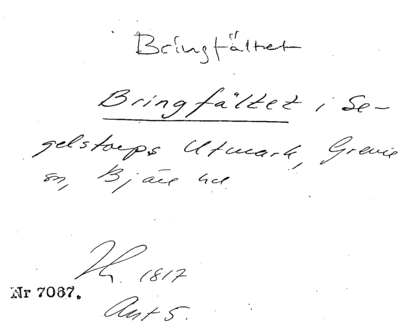 Bringfältet
Bringfältet i Se-
gelstorps Utmark, Grevie
sn, Bjäre hd
1817
Nr 7067.
Ant 5.